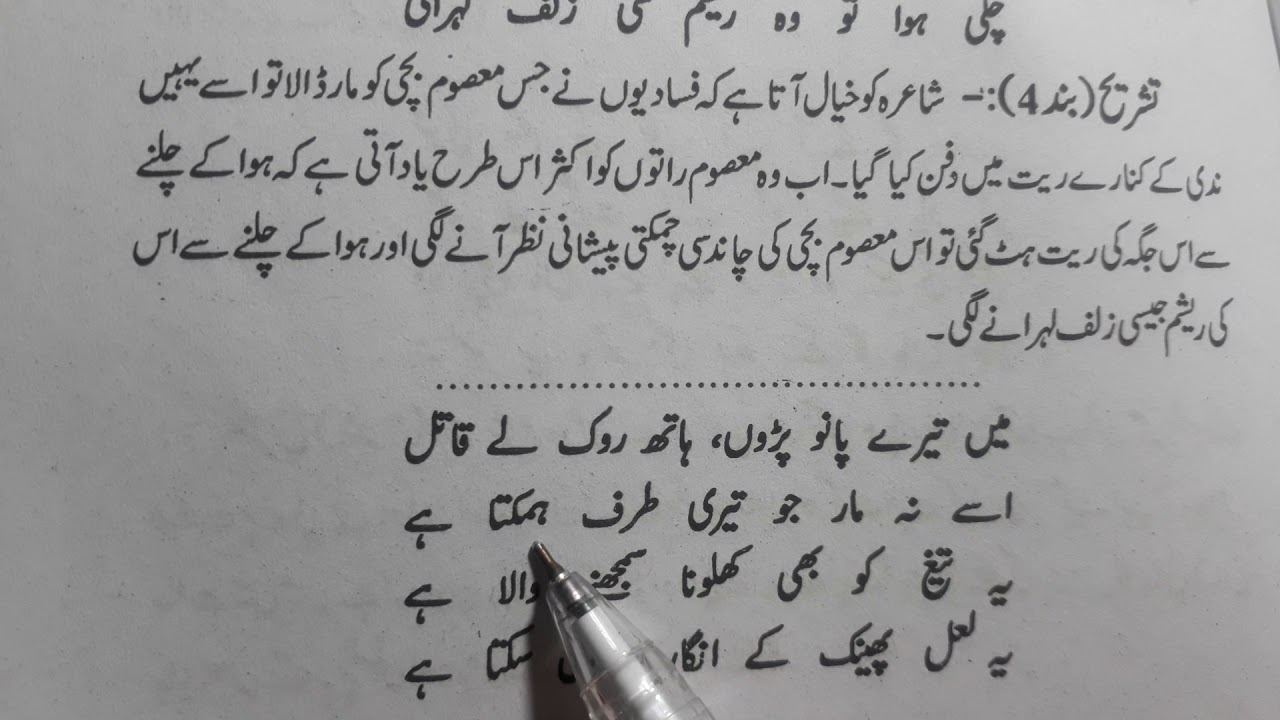 چلی ہوا تو وہ ریشم سی زلف لہرائی
تشریح (بند 4):- شاعرہ کو خیال آتا ہے کہ فسادیوں نے جس معصوم بچی کو مار ڈالا تو اسے یہیں
ندی کے کنارے ریت میں دفن کیا گیا۔ اب وہ معصوم راتوں کو اکثر اس طرح یاد آتی ہے کہ ہوا کے چلنے
سے اس جگہ کی ریت ہٹ گئی تو اس معصوم بچی کی چاند سی چمکتی پیشانی نظر آنے لگی اور ہوا کے چلنے سے اس
کی ریشم جیسی زلف لہرانے لگی۔
میں تیرے پانو پڑوں، ہاتھ روک لے قاتل
اسے نہ مار جو تیری طرف ہمکتا ہے
یہ تیغ کو بھی کھلونا سمجھنے والا ہے
یہ لعل پھینک کے سکتا ہے